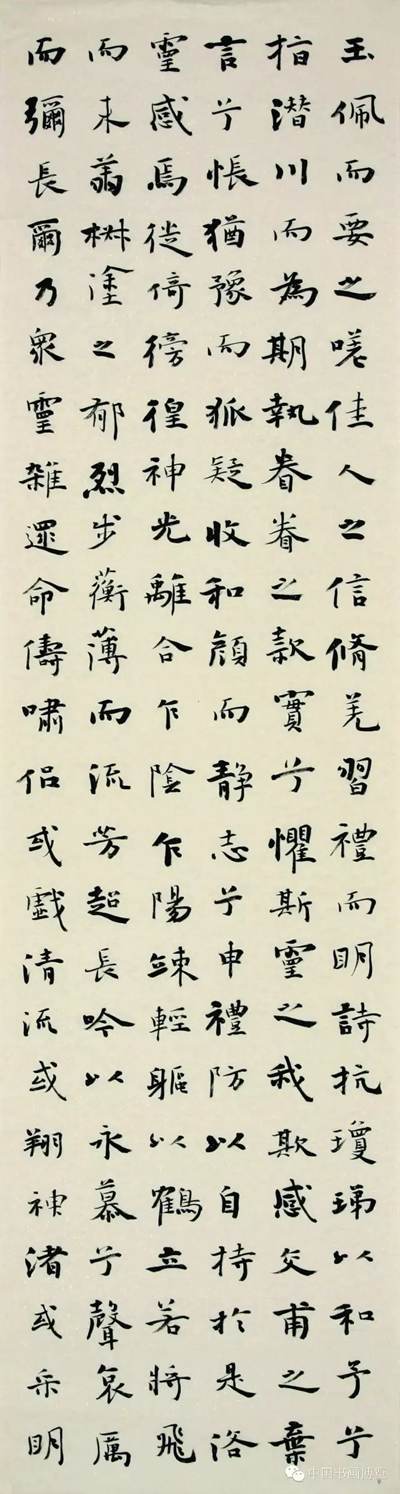 玉佩而要之嗟佳人之信脩羌習禮而明詩抗瓊珶以和予兮
指潛川而為期執眷眷之款實兮懼斯靈之我欺感交甫之棄
言兮悵猶豫而狐疑收和顏而靜志兮申禮防以自持於是洛
靈感焉徙倚徬徨神光離合乍陰乍陽竦輕軀以鶴立若將飛
而未翥椒塗之郁烈步蘅薄而流芳超長吟以永慕兮聲哀厲
而彌長爾乃眾靈雜遝命儔嘯侶或戲清流或翔神渚或采明
中国书画博览